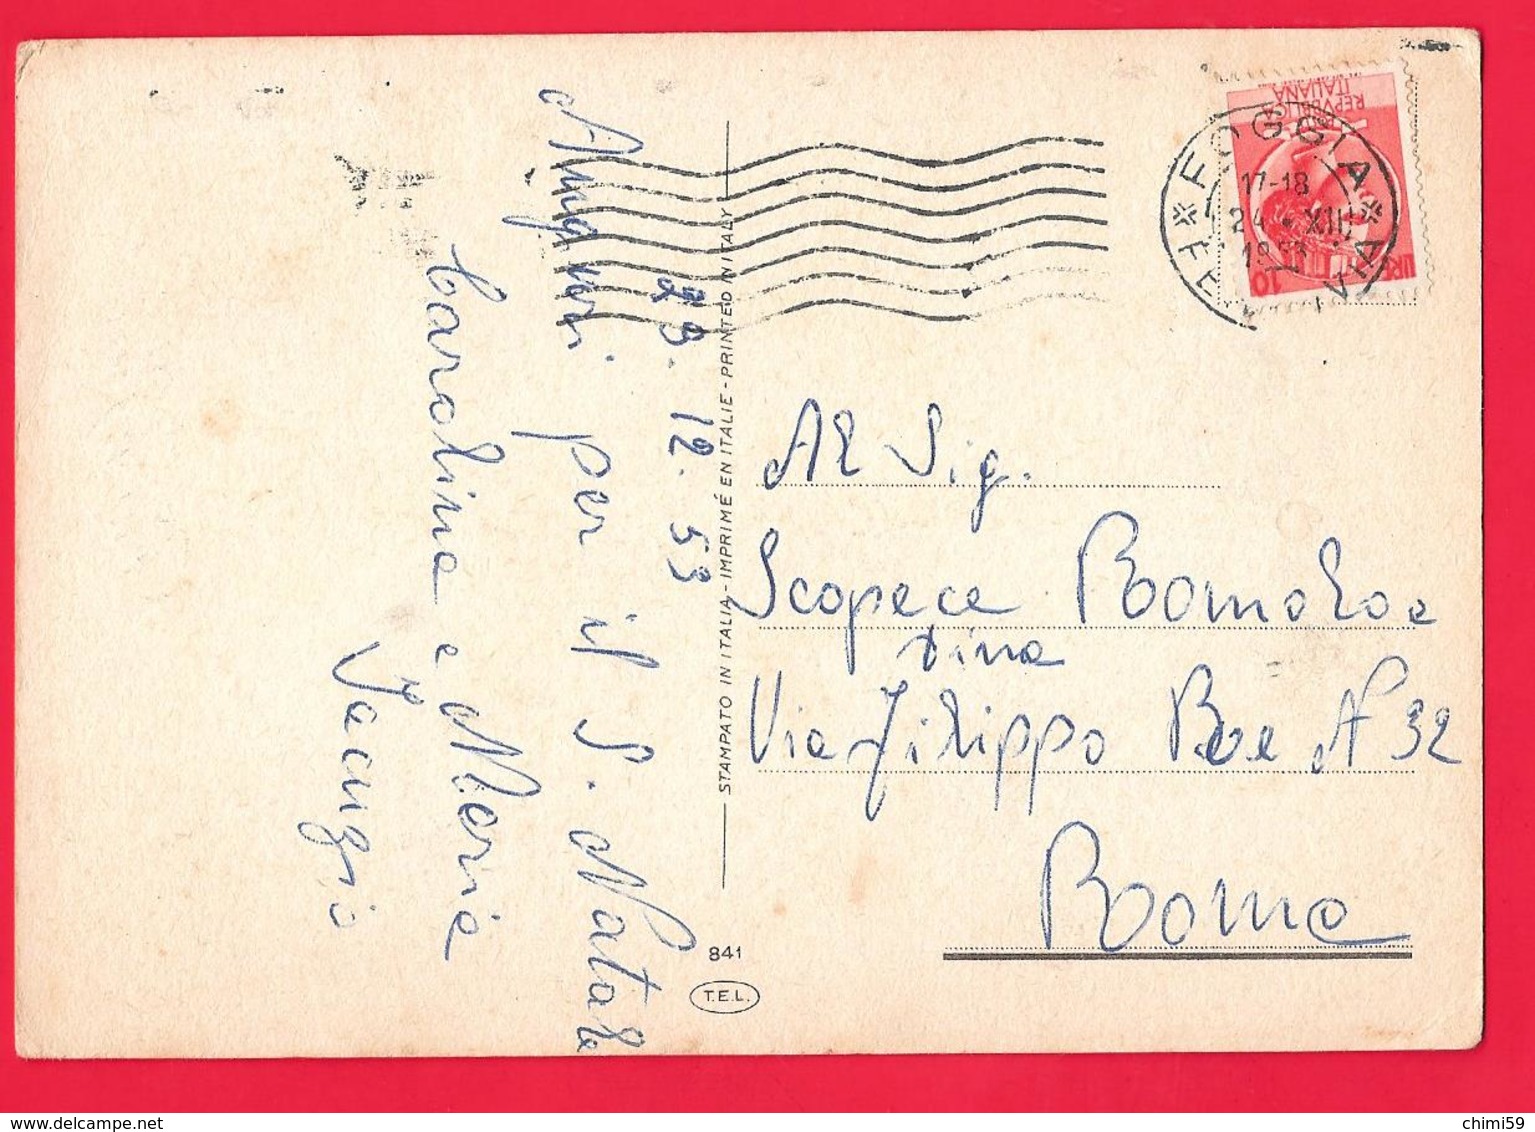 23. 12. 53
Auguri per il S. Natale
Carolina e Maria
Iacuzio
STAMPATO IN ITALIA - IMPRIMÉ EN ITALIE - PRINTED IN ITALY
841
T.E.L.
REPVBBLICA
ITALIANA
10
FOGGIA
17-18
24 • XII
1953
FERROVIA
Al Sig.
Scopece Romolo e
Dina
Via Filippo Re N 32
Roma
chimi59